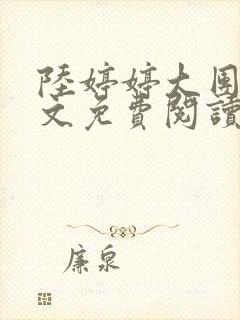 陸婷婷大圍
文免費閱讀
廉泉